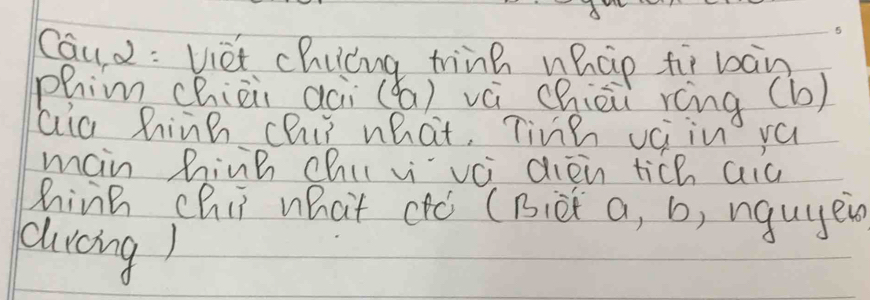 Câu 2: Viết chương trình nhập từ bàn
phím chiều dài (a) và chiều rộng (b)
của hình chữ nhật. Tính và in ra
màn hình chu vi và diện tích của
hình chữ nhật đó (Biết a, b, nguyên
dương)